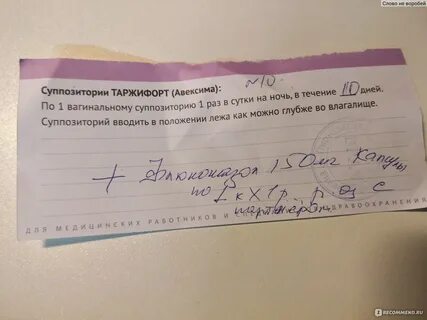 Слово не воробей
№10
Суппозитории ТАРЖИФОРТ (Авексима):
По 1 вагинальному суппозиторию 1 раз в сутки на ночь, в течение 10 дней.
Суппозиторий вводить в положении лежа как можно глубже во влагалище.
+ Флюконазол 150мг капсулы
по 1к х 1р.
с
партнёром
ДЛЯ МЕДИЦИНСКИХ РАБОТНИКОВ И ЗДРАВООХРАНЕНИЯ
IRECOMMEND.RU